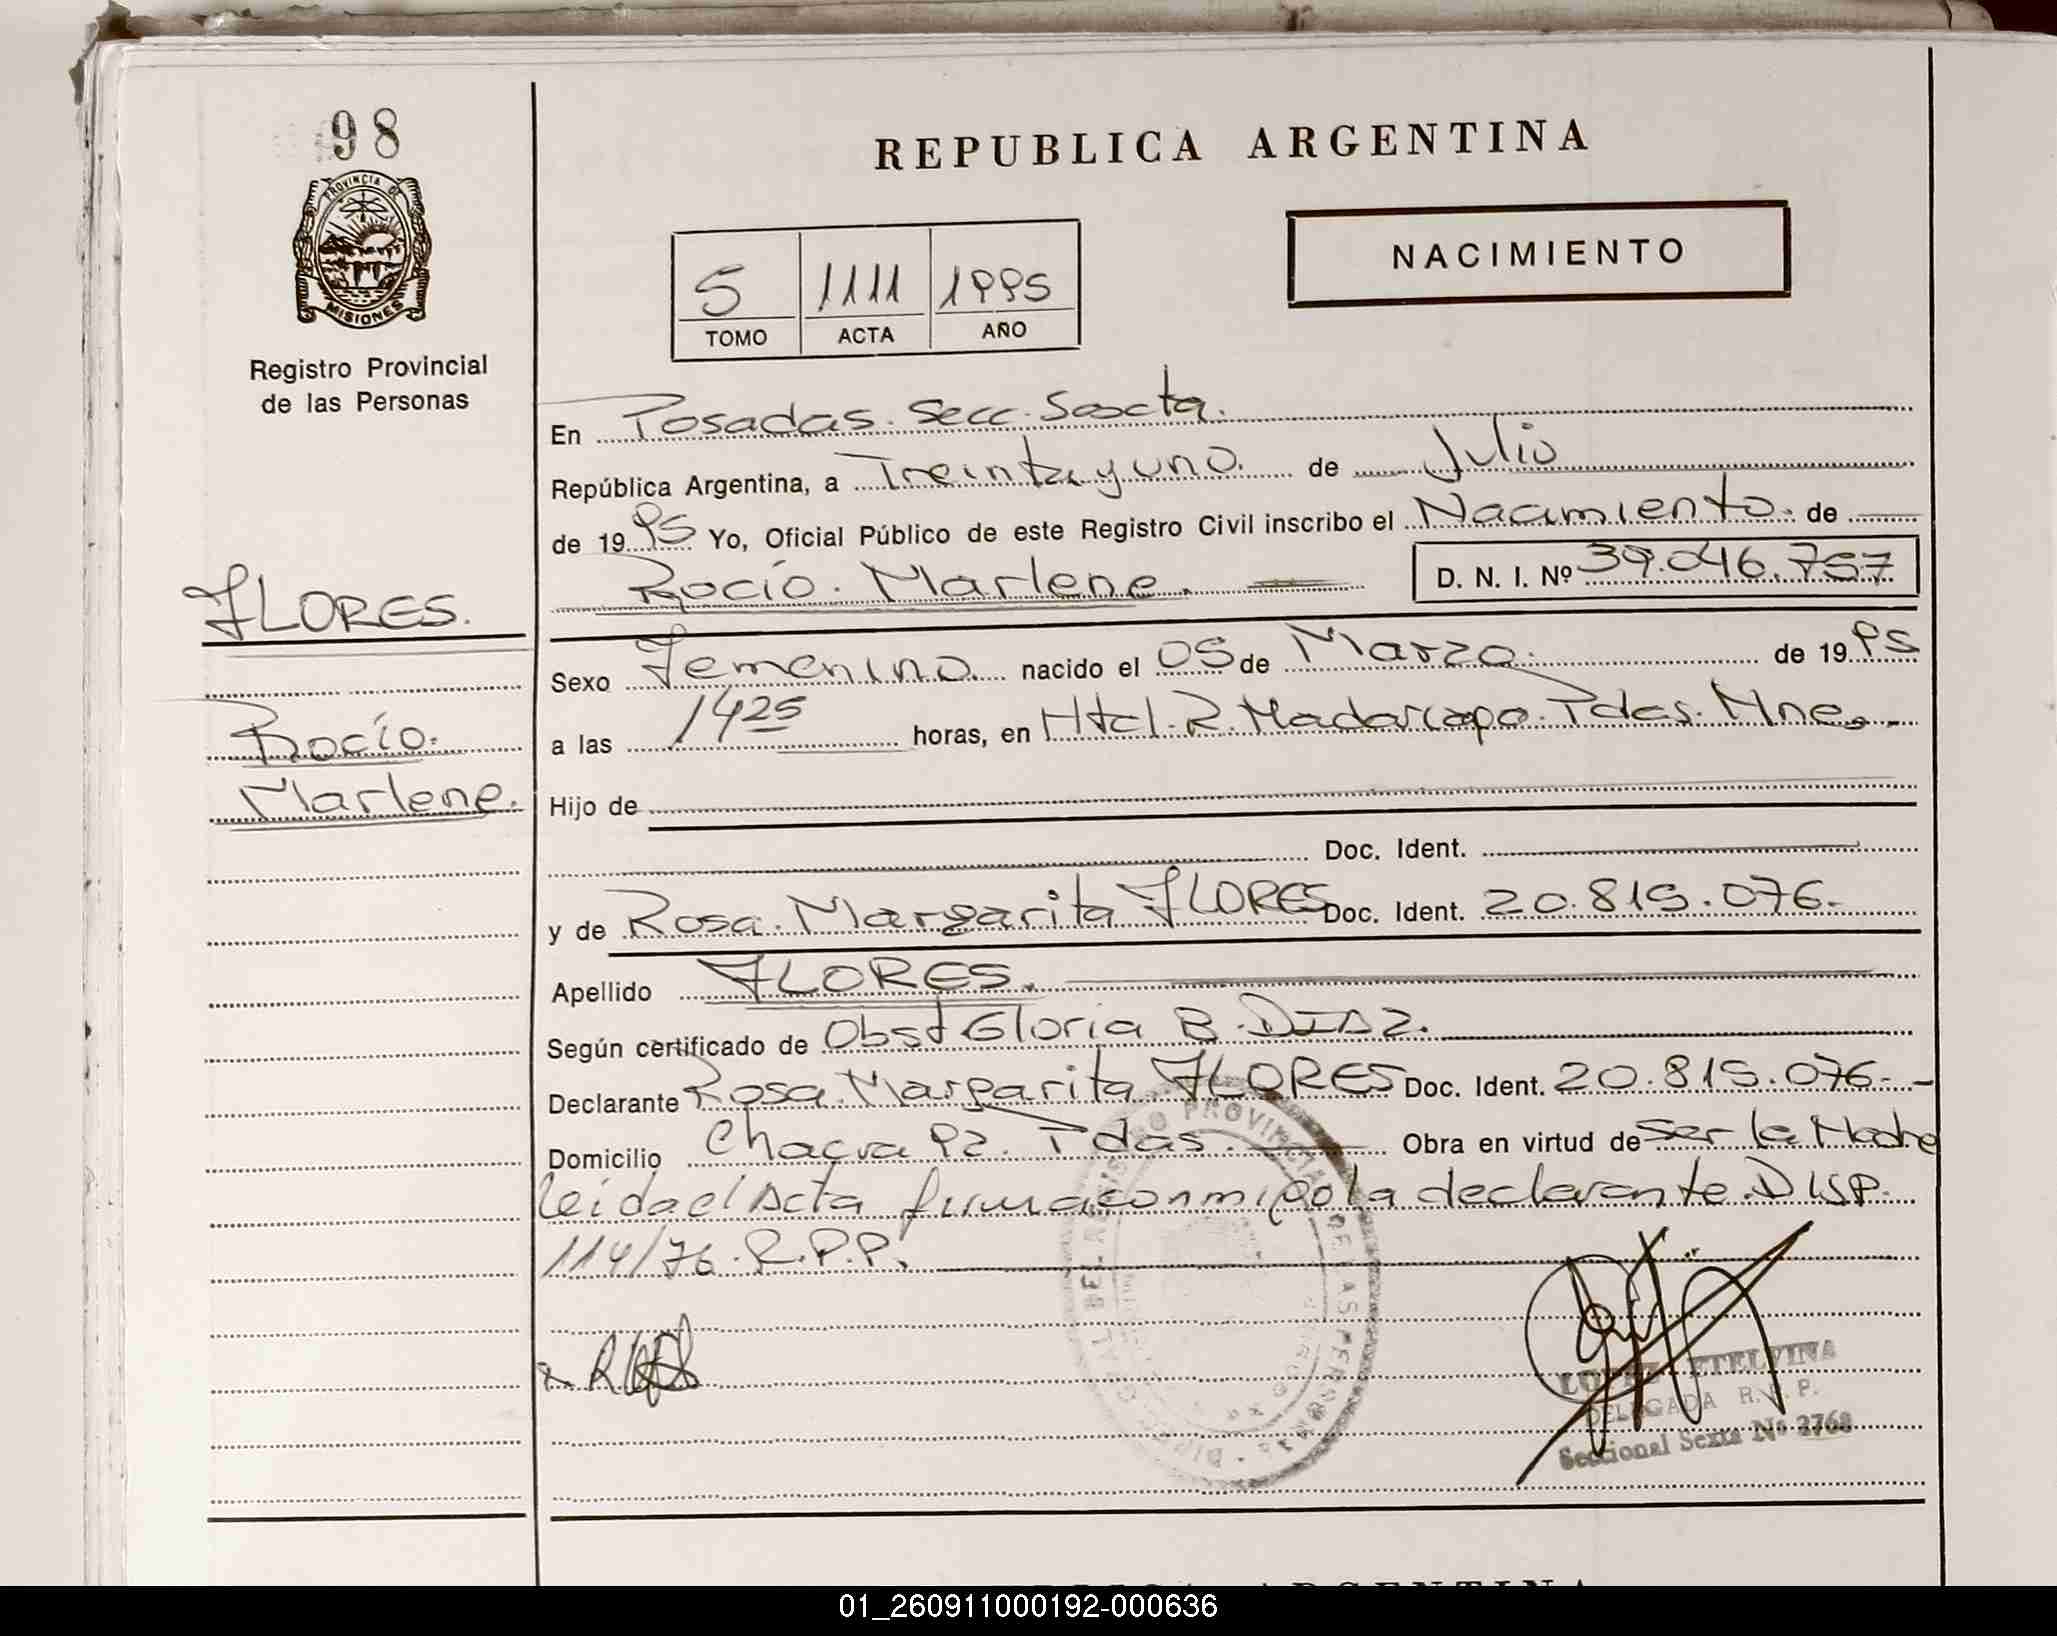 98
PROVINCIA DE
MISIONES
Registro Provincial
de las Personas
FLORES.
Rocío.
Marlene.
REPUBLICA ARGENTINA
NACIMIENTO
5 1111 1995
TOMO ACTA AÑO
En Posadas. Secc. Sexta.
República Argentina, a Treinta y uno. de Julio
de 1995 Yo, Oficial Público de este Registro Civil inscribo el Nacimiento. de
Rocío. Marlene. D. N. I. Nº 39.046.757
Sexo Femenino. nacido el 05 de Marzo. de 1995
a las 1425 horas, en Htal. R. Madariaga. Pdas. Mnes.
Hijo de
Doc. Ident.
y de Rosa. Margarita FLORES Doc. Ident. 20.815.076.
Apellido FLORES.
Según certificado de Obst Gloria B. DIAZ.
Declarante Rosa. Margarita. FLORES Doc. Ident. 20.815.076.-
Domicilio Chacra 92. Pdas. Obra en virtud de Ser la Madre
leida el Acta firma conmigo la declarante. DISP.
114/76. R.P.P.
DIREC. GRAL DEL REGISTRO PROVINCIAL DE LAS PERSONAS
LOPEZ ETELVINA
DELEGADA R. P. P.
Seccional Sexta Nº 2768
REPUBLICA ARGENTINA
01_260911000192-000636